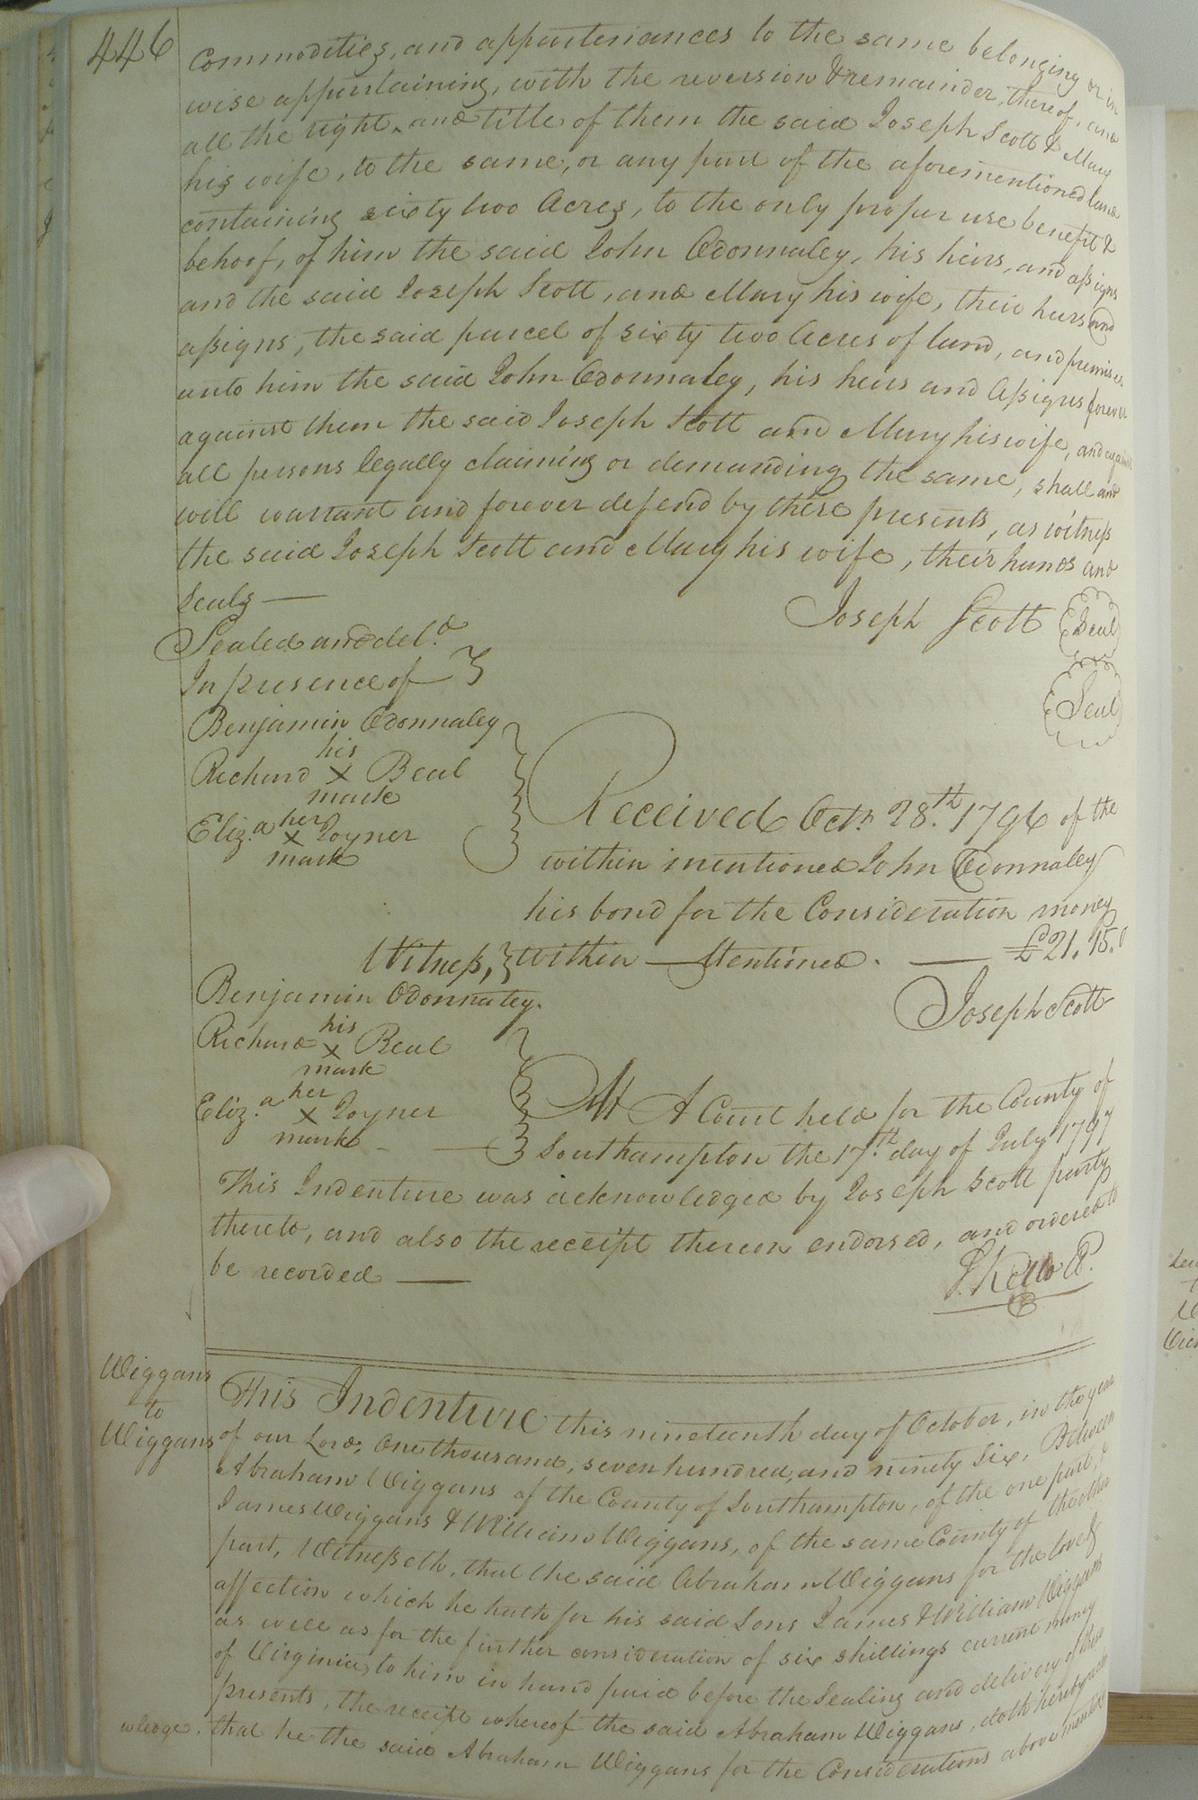 446
Commodities, and appurtenances to the same belonging or in
wise appurtaining, with the reversion & remainder, thereof, and
all the right, and title of them the said Joseph Scott & Mary
his wife, to the same, or any part of the aforementioned land
containing sixty two Acres, to the only proper use benefit &
behoof, of him the said John Odonnaley, his heirs, and assigns
and the said Joseph Scott, and Mary his wife, their heirs and
assigns, the said parcel of sixty two Acres of land, and premises
unto him the said John Odonnaley, his heirs and Assigns forever
against them the said Joseph Scott and Mary his wife, and against
all persons legally claiming or demanding the same, shall and
will warrant and forever defend by these presents, as witness
the said Joseph Scott and Mary his wife, their hands and
Seals —
Joseph Scott Seal
Seal
Sealed and del.d
In presence of
Benjamin Odonnaley
his
Richard X Beal
mark
her
Eliz.a X Joyner
mark
Received Octr. 28.th 1796 of the
within mentioned John Odonnaley
his bond for the Consideration money
within Mentioned. — £21.15.0
Joseph Scott
Witness,
Benjamin Odonnaley.
his
Richard X Beal
mark
her
Eliz.a X Joyner
mark
At A Court held for the County of
Southampton the 17.th day of July 1797
This Indenture was acknowledged by Joseph Scott party
thereto, and also the receipt thereon endorsed, and ordered to
be recorded —
Wiggans
to
Wiggans
This Indenture this nineteenth day of October, in the year
of our Lord, One thousand, seven hundred, and ninety Six, Between
Abraham Wiggans of the County of Southampton, of the one part, &
James Wiggans & William Wiggans, of the same County of the other
part, Witnesseth, that the said Abraham Wiggans for the love &
affection which he hath for his said Sons James & William Wiggans
as well as for the further consideration of six shillings current money
of Virginia, to him in hand paid before the Sealing and delivery of these
presents, the receipt whereof the said Abraham Wiggans, doth hereby
wledge. that he the said Abraham Wiggans for the Considerations above